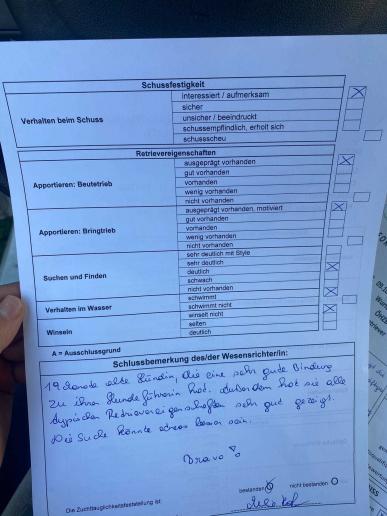 Schussfestigkeit
Verhalten beim Schuss
interessiert / aufmerksam
sicher
unsicher / beeindruckt
schussempfindlich, erholt sich
schussscheu
Retrievereigenschaften
Apportieren: Beutetrieb
ausgeprägt vorhanden
gut vorhanden
vorhanden
wenig vorhanden
nicht vorhanden
Apportieren: Bringtrieb
ausgeprägt vorhanden, motiviert
gut vorhanden
vorhanden
wenig vorhanden
nicht vorhanden
Suchen und Finden
sehr deutlich mit Style
sehr deutlich
deutlich
schwach
nicht vorhanden
Verhalten im Wasser
schwimmt
schwimmt nicht
Winseln
winselt nicht
selten
deutlich
A = Ausschlussgrund
Schlussbemerkung des/der Wesensrichter/in:
19 Monate alte Hündin, die eine sehr gute Bindung
zu ihrer Hundeführerin hat. Außerdem hat sie alle
typischen Retrievereigenschaften sehr gut gezeigt.
Die Suche könnte etwas besser sein.
Bravo!
Die Zuchttauglichkeitsfeststellung ist
bestanden
nicht bestanden